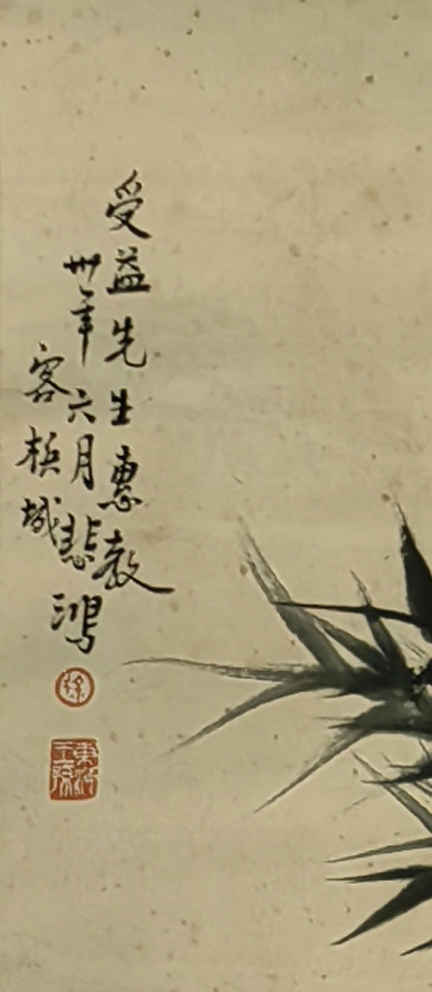 受益先生惠教
卅年六月悲鴻
客梹城
徐
東海王孫